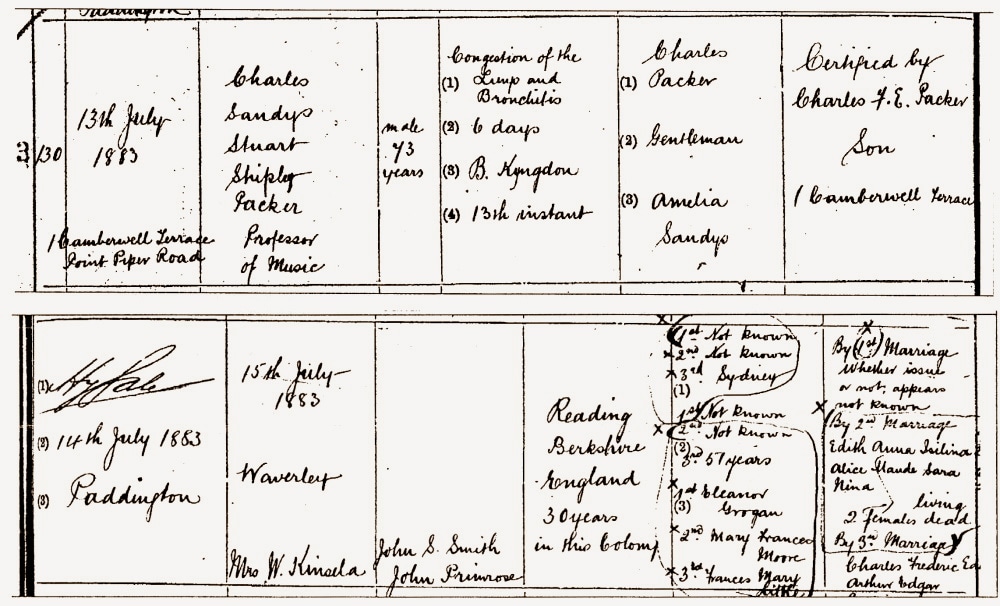 Paddington
130
13th July
1883
1 Camberwell Terrace
Point Piper Road
Charles
Sandys
Stuart
Shipley
Packer
Professor
of Music
male
73
years
Congestion of the
(1) Lungs and
Bronchitis
(2) 6 days
(3) B. Kyngdon
(4) 13th instant
Charles
(1) Packer
(2) Gentleman
(3) Amelia
Sandys
Certified by
Charles F. E. Packer
Son
1 Camberwell Terrace
(1)
(2) 14th July 1883
(3) Paddington
15th July
1883
Waverley
Mrs W. Kinsela
John S. Smith
John Primrose
Reading
Berkshire
England
30 years
in this Colony
1st Not known
x 2nd Not known
x 3rd Sydney
(1)
1st Not known
x 2nd Not known
(2)
3rd 57 years
x 1st Eleanor
(3) Grogan
x 2nd Mary Frances
Moore
x 3rd Frances Mary
Little
x
By (1st) Marriage
Whether issue
or not, appears
x not known
(By 2nd Marriage
Edith Anna
Alice Maude Sara
Nina
living
2 females dead
By 3rd Marriage
Charles Frederic Ed
Arthur Edgar